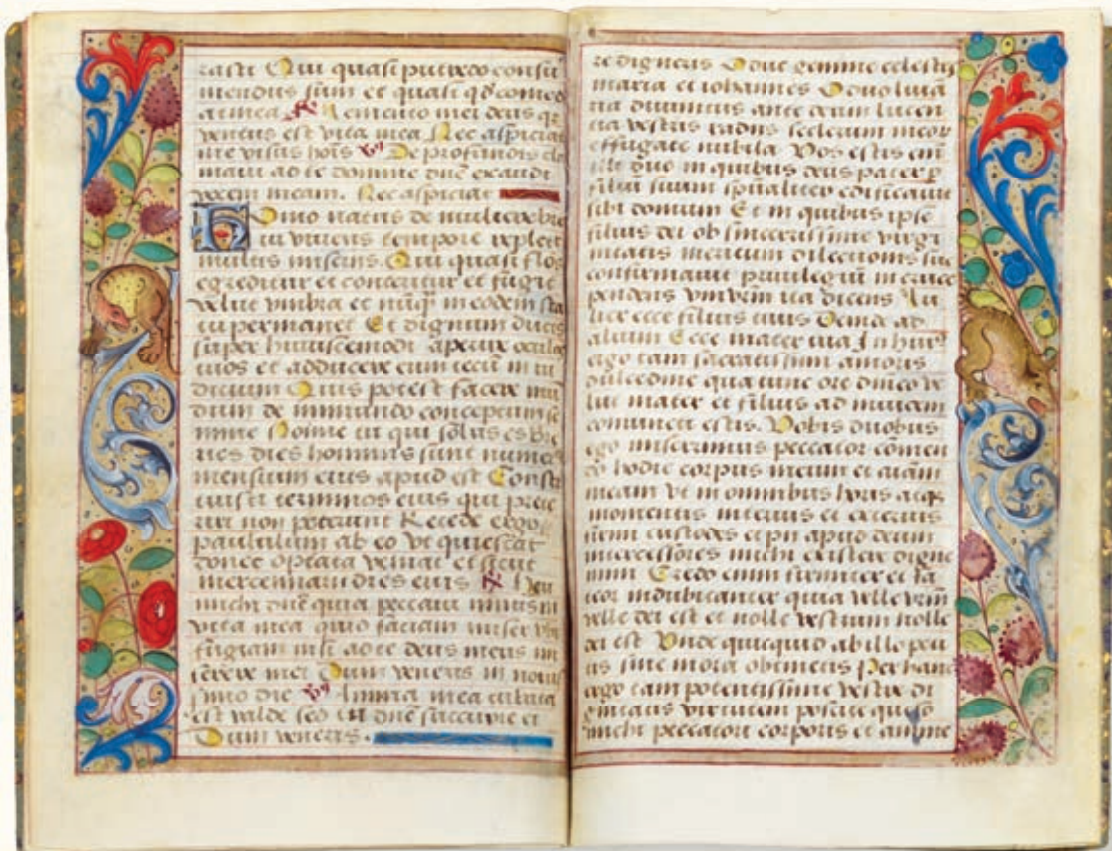 rasti Qui quasi putredo consu
mendus sum et quasi qd comed
a tinea R Memento mei deus qr
ventus est vita mea Nec aspiciat
me visus hois By De profundis cla
mavi ad te domine dne exaudi
vocem meam. Nec aspiciat
Homo natus de muliere bre
vi vivens tempore repletr
multis miseriis. Qui quasi flos
egreditur et conteritur et fugit
velut umbra et nunqz in eodem sta
tu permanet Et dignum ducis
super huiuscemodi aperire oculos
tuos et adducere eum tecu in iu
dicium Quis potest facere mu
dum de immundo conceptum se
mine Nonne tu qui solus es Bre
ves dies hominis sunt numerus
mensium eius apud te est Consti
tuisti terminos eius qui prete
riri non poterunt Recede ergo
paululum ab eo ut quiescat
donec optata veniat et sicut
mercennarii dies eius R Heu
michi dne quia peccavi nimis in
vita mea quid faciam miser ubi
fugiam nisi ad te deus meus mi
serere mei Dum veneris in novis
simo die By Anima mea turbata
est valde sed tu dne succurre ei
Dum veneris.
re digneris O due gemme celestes
maria et iohannes O duo lumina
ria divinitus ante deum lucen
tia vestris radiis scelerum meor
effugate nubila Vos estis eni
illi duo in quibus deus pater p
filium suum spualiter edificavit
sibi domum Et in quibus ipse
filius dei ob sincerissime virgi
nitatis meritum dilectionis sue
confirmavit privilegiu in cruce
pendens uni vrm ita dicens Mu
lier ecce filius tuus Deinde ad
alium Ecce mater tua In hui
ergo tam sacratissimi amoris
dulcedine qua tunc ore dnico ve
lut mater et filius ad invicem
coniuncti estis. Vobis duobus
ego miserrimus peccator comen
do hodie corpus meum et aiam
meam Ut in omnibus horis atqz
momentis interius et exterius
firmi custodes et pii apud deum
intercessores michi existere digne
mini Credo enim firmiter et fa
teor indubitanter quia velle vrm
velle dei est et nolle vestrum nolle
dei est Unde quicquid ab illo peti
tis sine mora obtinetis Per hanc
ergo tam potentissime vestre di
gnitatis virtutem poscite queso
michi peccatori corporis et anime